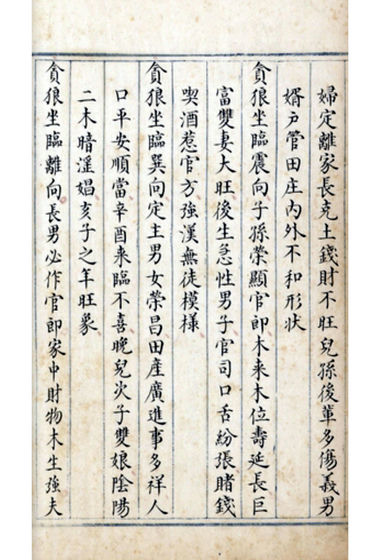 婦定離家長克土錢財不旺兒孫後輩多傷義男
婿户管田庄內外不和形狀
貪狼坐臨震向子孫榮顯官即木来木位壽延長巨
富雙妻大旺後生急性男子官司口舌紛張賭錢
喫酒惹官方強漢無徒模樣
貪狼坐臨巽向定主男女榮昌田產廣進事多祥人
口平安順當辛酉来臨不喜晚兒火子雙娘陰陽
二木暗滛娼亥子之年旺象
貪狼坐臨離向長男必作官即家中財物木生強夫